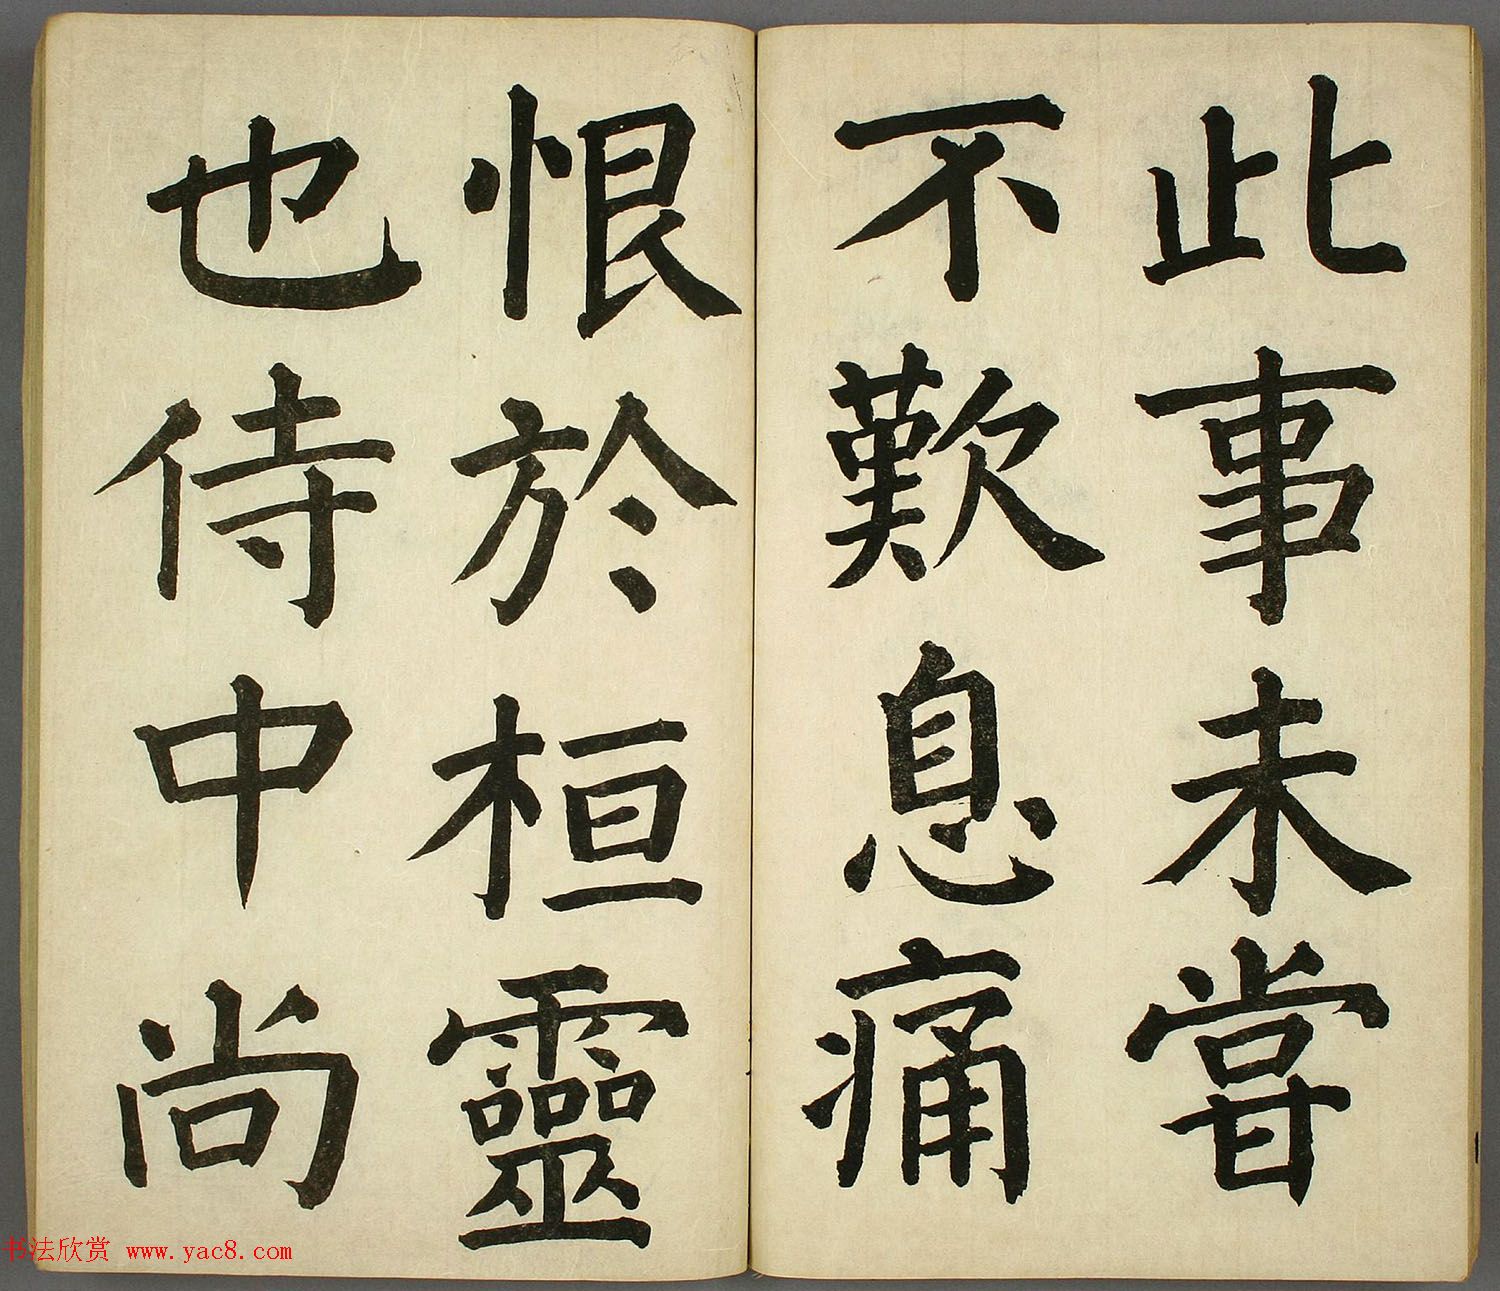 此事未甞
不歎息痛
恨於桓靈
也侍中尚
书法欣赏 www.yac8.com